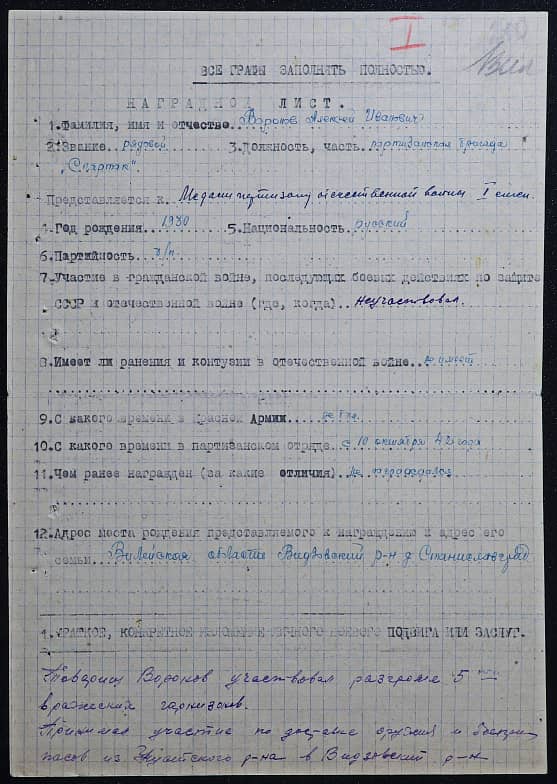 I
ВСЕ ГРАФЫ ЗАПОЛНЯТЬ ПОЛНОСТЬЮ.
НАГРАДНОЙ ЛИСТ.
1.Фамилия, имя и отчество..Воронов Алексей Иванович
2.Звание..рядовой 3.Должность, часть..партизанская бригада
"Спартак"
Представляется к..Медали партизану отечественной войны I степ.
4.Год рождения...1930 5.Национальность.русский
6.Партийность...б/п
7.Участие в гражданской войне, последующих боевых действиях по защите
СССР и отечественной войне (где, когда)..неучаствовал
8.Имеет ли ранения и контузии в отечественной войне...не имеет
9.С какого времени в Красной Армии....
10.С какого времени в партизанском отряде.с 10 октября 42 года
11.Чем ранее награжден (за какие отличия).не награждался
12.Адрес места рождения представляемого к награждению и адрес его
семьи...Вилейская область Видзовский р-н д Станиславград
1.КРАТКОЕ, КОНКРЕТНОЕ ИЗЛОЖЕНИЕ ЛИЧНОГО БОЕВОГО ПОДВИГА ИЛИ ЗАСЛУГ.
Товарищ Воронов участвовал разгроме 5 ти
вражеских гарнизонов.
Принимал участие по доставке оружия и боепри-
пасов из р-на в Видзовский р-н